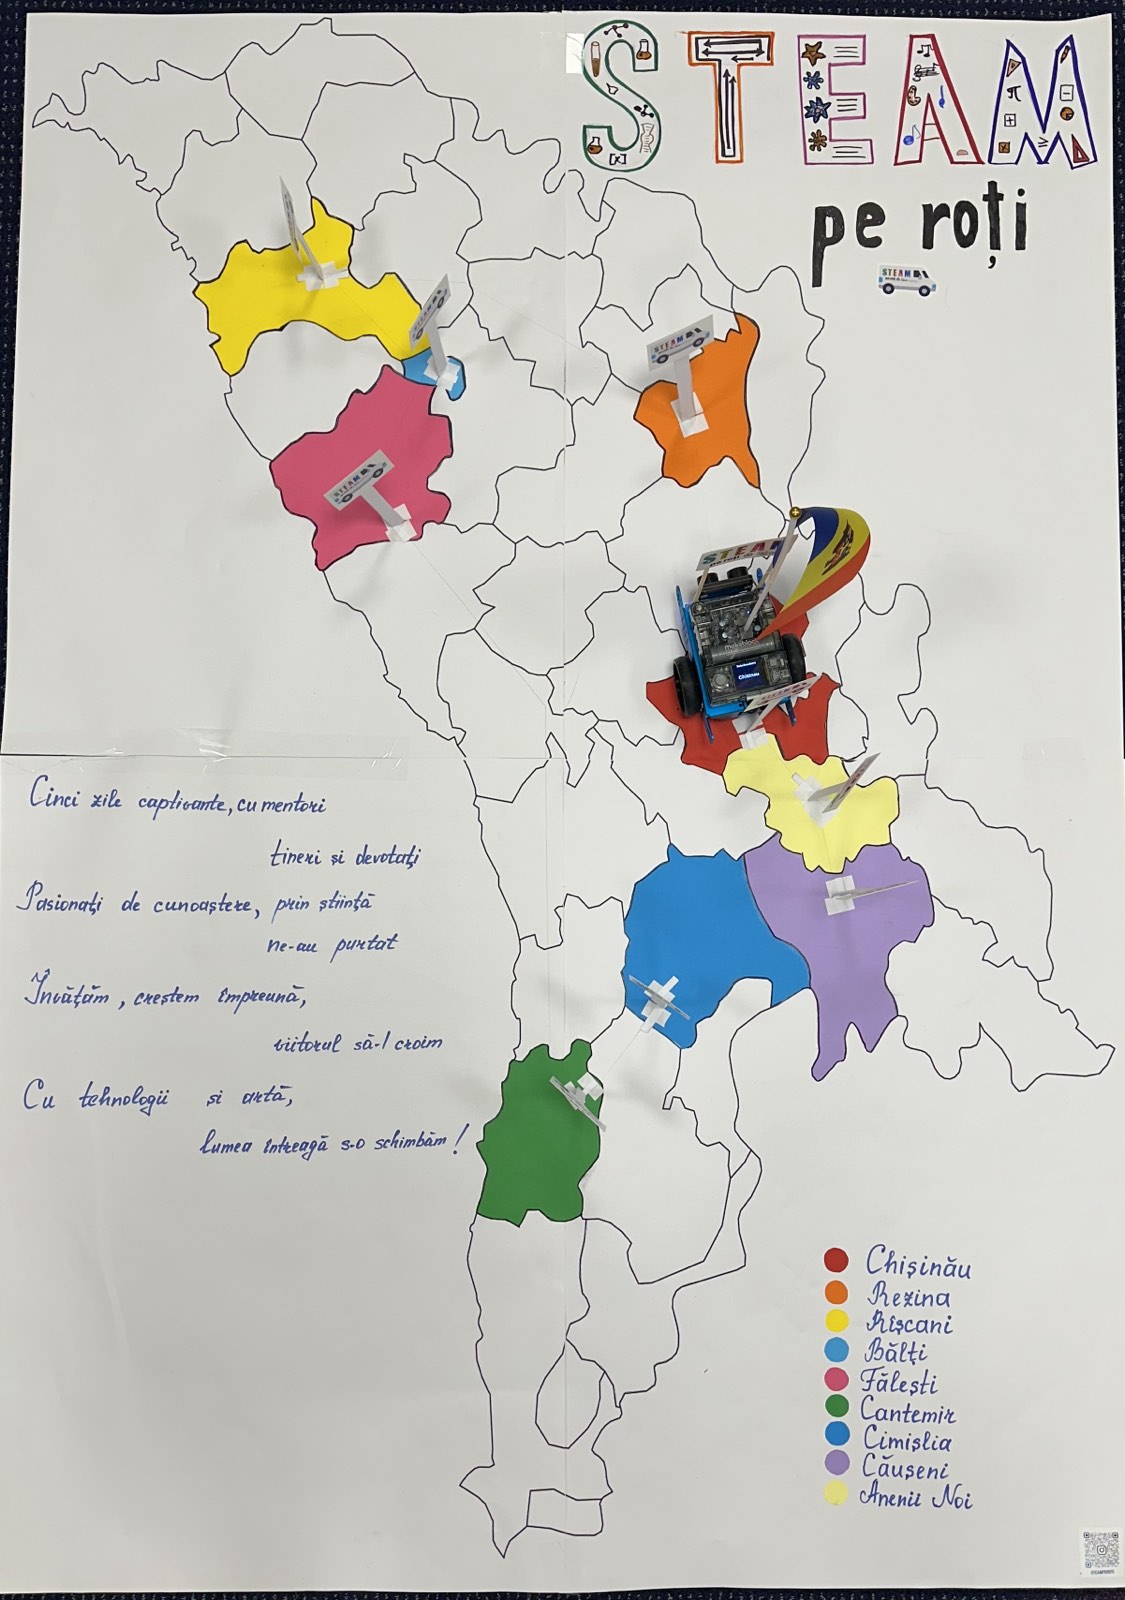 STEAM
pe roți
STEAM
STEAM
STEAM
STEAM
STEAM
STEAM
Chisinau
Cinci zile captivante, cu mentori
tineri și devotați
Pasionați de cunoaștere, prin știință
ne-au purtat
Învățăm, creștem împreună,
viitorul să-l croim
Cu tehnologii și artă,
lumea întreagă s-o schimbăm!
Chișinău
Rezina
Rîșcani
Bălți
Fălești
Cantemir
Cimișlia
Căușeni
Anenii Noi